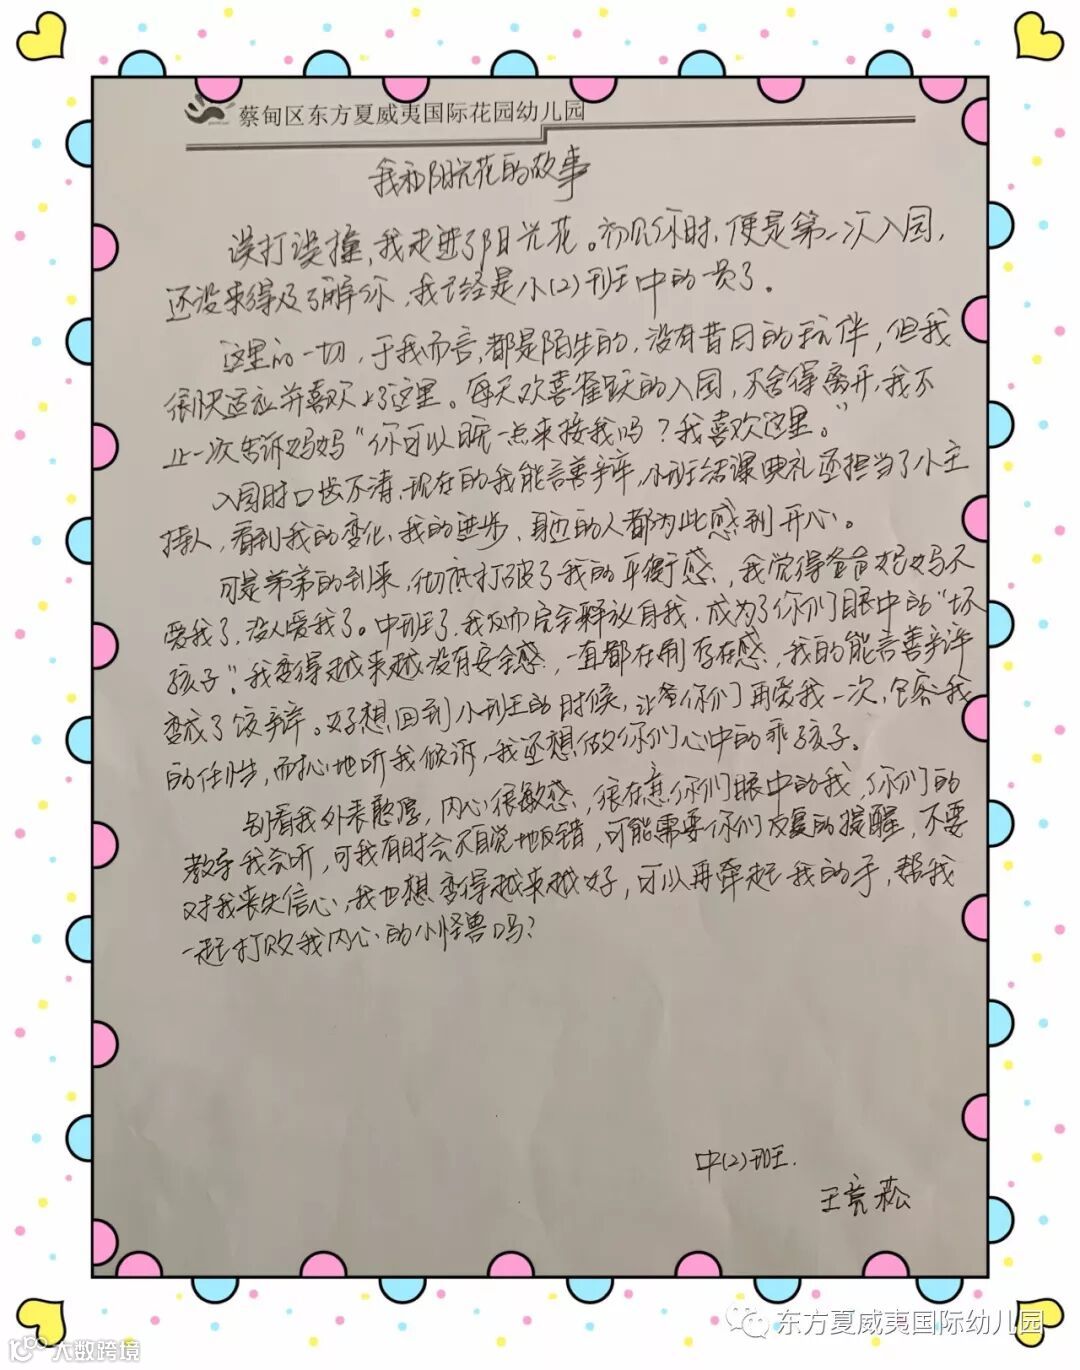 蔡甸区东方夏威夷国际花园幼儿园
我和阳光花的故事
误打误撞，我走进了阳光花。初见你时，便是第一次入园，
还没来得及了解你，我已经是小(2)班中的一员了。
这里的一切，于我而言，都是陌生的，没有昔日的玩伴，但我
很快适应并喜欢上了这里。每天欢喜雀跃的入园，不舍得离开，我不
止一次告诉妈妈“你可以晚一点来接我吗？我喜欢这里。”
入园时口齿不清，现在的我能言善辩，小班结课典礼还担当了小主
持人，看到我的变化、我的进步，身边的人都为此感到开心。
可是弟弟的到来，彻底打破了我的平衡感，我觉得爸爸妈妈不
爱我了，没人爱我了。中班了，我反而完全释放自我，成为了你们眼中的“坏
孩子”。我变得越来越没有安全感，一直都在刷存在感，我的能言善辩
变成了饺辩。好想回到小班的时候，让你们再爱我一次，包容我
的任性，耐心地听我倾诉，我还想做你们心中的乖孩子。
别看我外表憨厚，内心很敏感，很在意你们眼中的我，你们的
教导我会听，可我有时会不自觉地犯错，可能需要你们反复的提醒，不要
对我丧失信心，我也想变得越来越好，可以再牵起我的手，帮我
一起打败我内心的小怪兽吗？
中(2)班.
王亮菘
东方夏威夷国际幼儿园
大数跨境